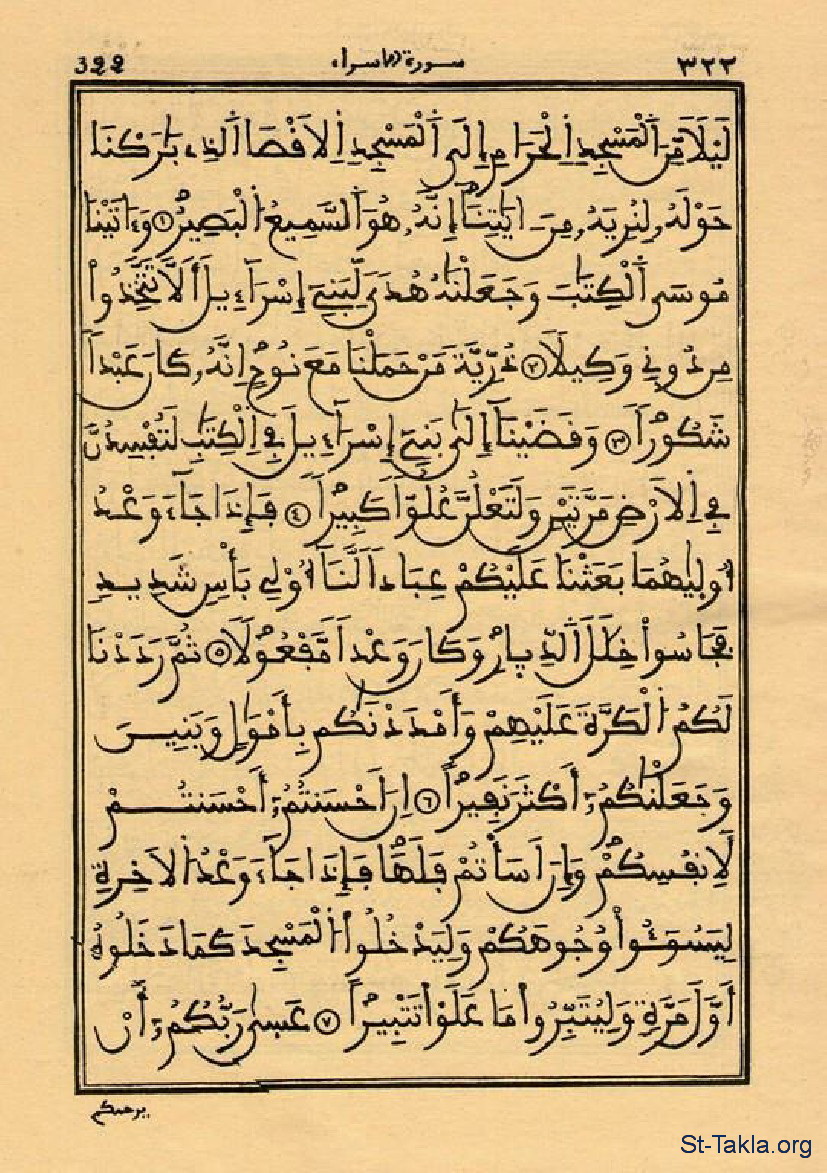 322 سورة الاسراء ٣٢٢
لَيْلًا مِّنَ ٱلْمَسْجِدِ ٱلْحَرَامِ إِلَى ٱلْمَسْجِدِ ٱلَاقْصَا ٱلذِے بَٰرَكْنَا
حَوْلَهُۥ لِنُرِيَهُۥ مِنَ اٰيَٰتِنَآ إِنَّهُۥ هُوَ ٱلسَّمِيعُ ٱلْبَصِيرُ ١ وَءَاتَيْنَا
مُوسَى ٱلْكِتَٰبَ وَجَعَلْنَٰهُ هُدىً لِّبَنِےٓ إِسْرَآءِيلَ أَلَّا تَتَّخِذُوا۟
مِن دُونِے وَكِيلًا ٢ ذُرِّيَّةَ مَنْ حَمَلْنَا مَعَ نُوحٍ اِنَّهُۥ كَانَ عَبْداً
شَكُوراً ٣ وَقَضَيْنَآ إِلَىٰ بَنِےٓ إِسْرَآءِيلَ فِے اِلْكِتَٰبِ لَتُفْسِدُنَّ
فِے اِلَارْضِ مَرَّتَيْنِ وَلَتَعْلُنَّ عُلُوّاً كَبِيراً ٤ فَإِذَا جَآءَ وَعْدُ
أُولَيٰهُمَا بَعَثْنَا عَلَيْكُمْ عِبَاداً لَّنَآ أُو۟لِے بَأْسٍ شَدِيدٍ
فَجَاسُوا۟ خِلَٰلَ ٱلدِّيارِ وَكَانَ وَعْداً مَّفْعُولًا ٥ ثُمَّ رَدَدْنَا
لَكُمُ اُلْكَرَّةَ عَلَيْهِمْ وَأَمْدَدْنَٰكُم بِأَمْوَٰلٍ وَبَنِينَ
وَجَعَلْنَٰكُمُۥٓ أَكْثَرَ نَفِيراً ٦ اِنَ اَحْسَنتُمُۥٓ أَحْسَنتُمْ
لِأَنفُسِكُمْ وَإِنَ اَسَأْتُمْ فَلَهَا فَإِذَا جَآءَ وَعْدُ اُلَاخِرَةِ
لِيَسُـۥٓـُٔوا۟ وُجُوهَكُمْ وَلِيَدْخُلُوا۟ اُلْمَسْجِدَ كَمَا دَخَلُوهُ
أَوَّلَ مَرَّةٍ وَلِيُتَبِّرُوا۟ مَا عَلَوْا۟ تَتْبِيراً ٧ عَسَىٰ رَبُّكُمُۥٓ أَنْ
يرحمكم
St-Takla.org